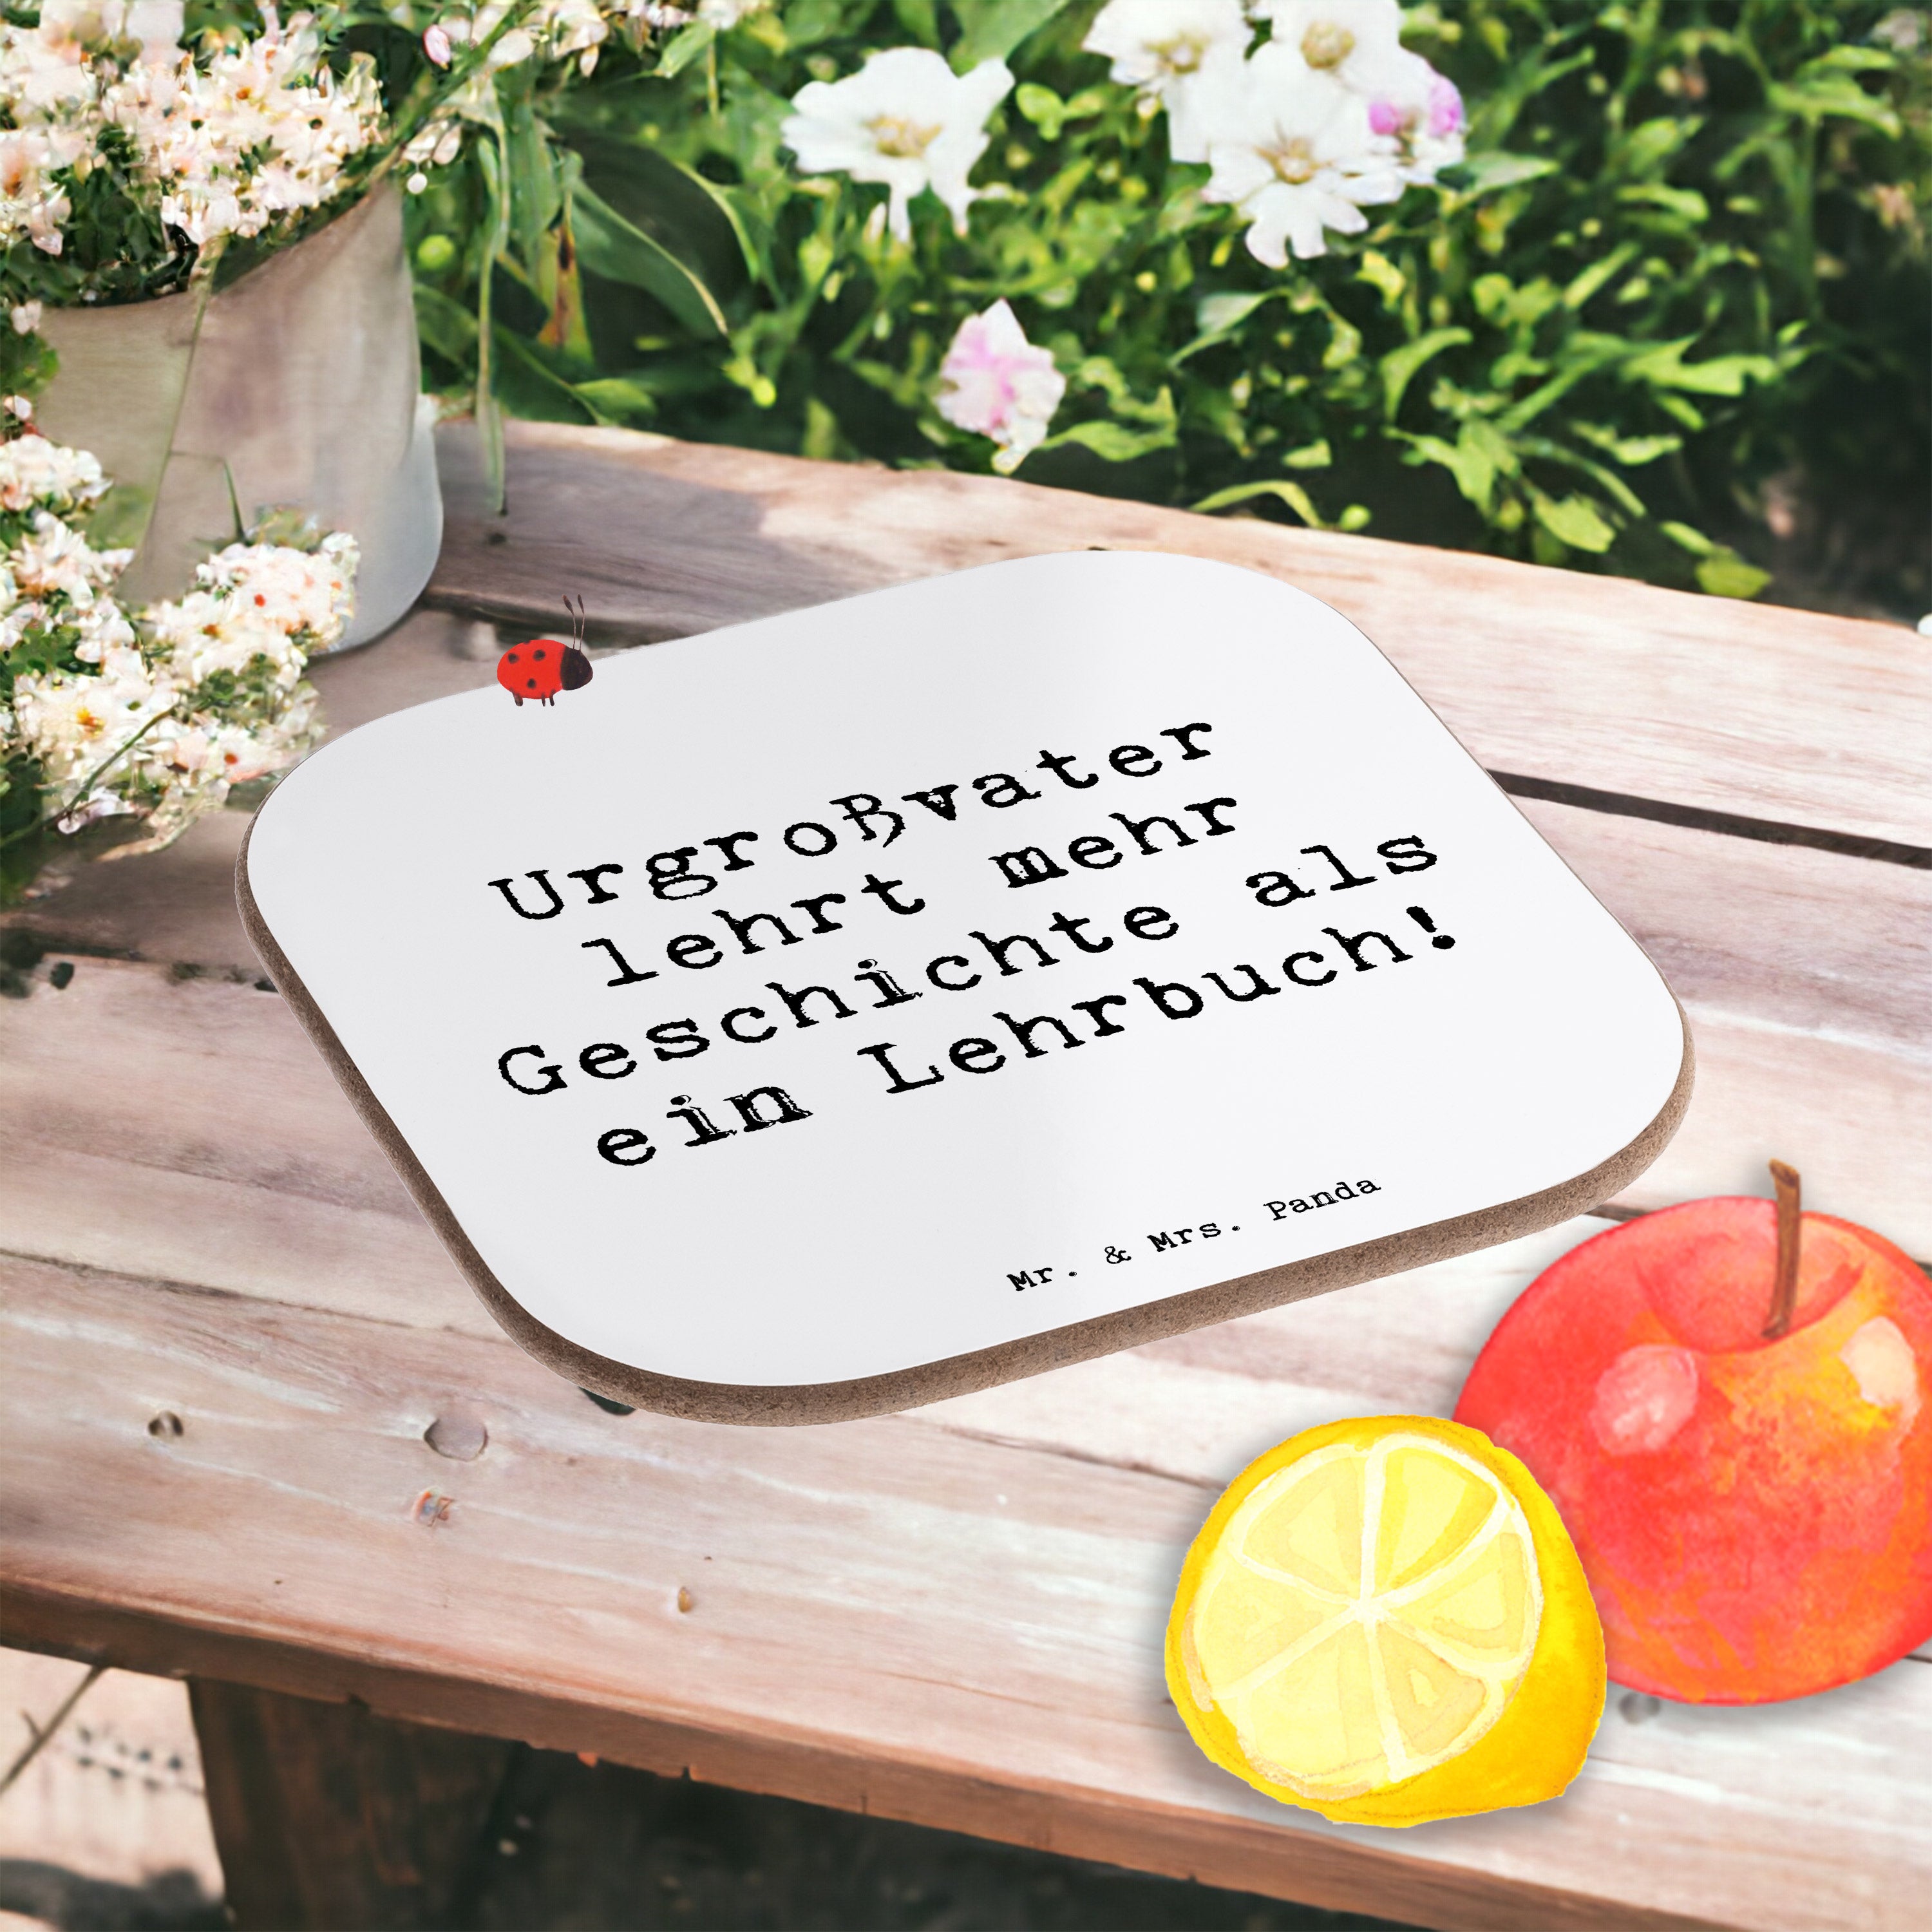 Urgroßvater
lehrt mehr
Geschichte als
ein Lehrbuch!
Mr. & Mrs. Panda